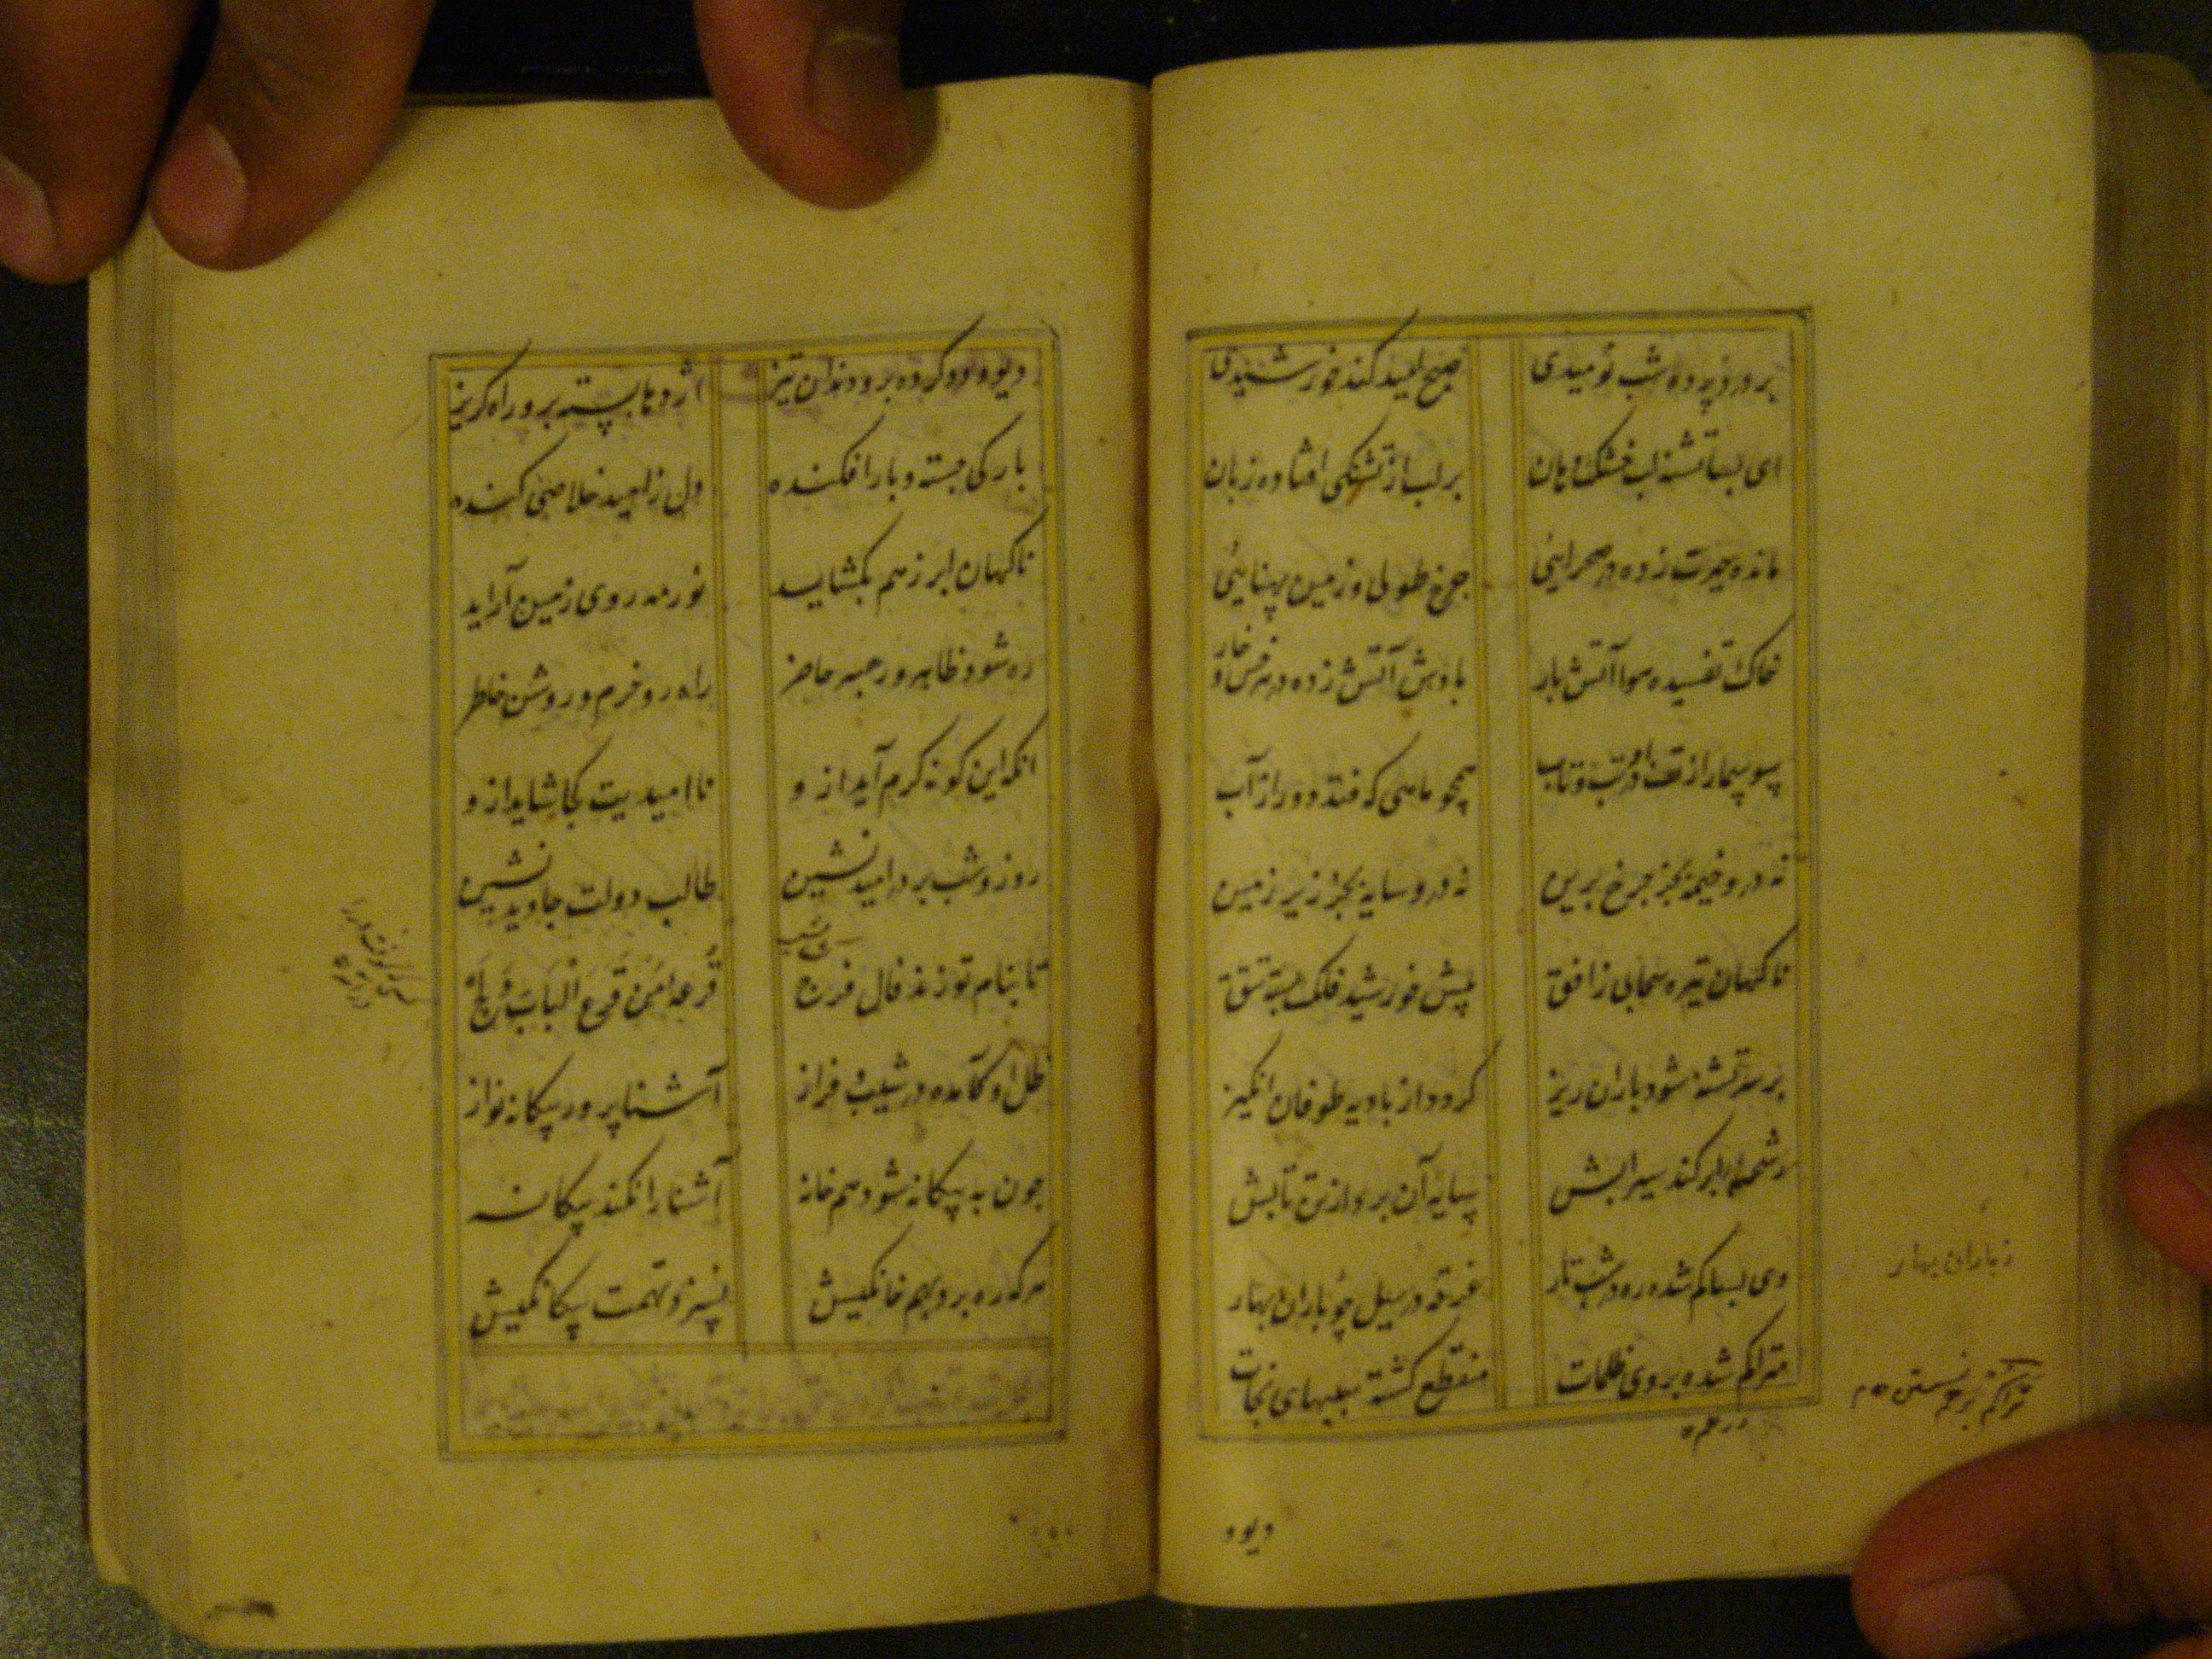 بر درد پرده شب نومیدی
صبح امید کند خورشیدی
ای بسا تشنه لب خشک دهان
بر لب از تشنگی افتاده زبان
مانده حیرت زده در صحرایی
چرخ طولی و زمین پهنایی
خاک تفسیده هوا آتش بار
بادش آتش زده در هر خس و خار
سوسمار از تف او در تب و تاب
همچو ماهی که فتد دور از آب
نه در و خیمه بجز چرخ برین
نه در و سایه بجز زیر زمین
ناگهان تیره سحابی ز افق
پیش خورشید فلک بسته تتق
بر سر تشنه شود باران ریز
گردد از بادیه طوفان انگیز
رشحه ابر کند سیرابش
سایه آن برد از تن تابش
وی بسا گم شده ره در شب تار
غرقه در سیل چو باران بهار
ز باران بهار
متراکم شده بر وی ظلمات
منقطع گشته سببهای نجات
دیو و دد
دیو و دد کرده برو دندان تیز
اژدها بسته برو راه گریز
بارگی جسته و بار افکنده
دل ز امید خلاصی کنده
ناگهان ابر ز هم بگشاید
نور مه روی زمین آراید
ره شود ظاهر و رهبر حاضر
راه رو خرم و روشن خاطر
آنکه این گونه کرم آید ازو
ناامیدیت کجا شاید ازو
روز و شب بر در امید نشین
طالب دولت جاوید نشین
تا بنام تو زند فال فرج
قرعه امن قرع الباب ولج
ظل او کامده در شیب و فراز
آشنا پرور بیگانه نواز
چون به بیگانه شود هم خانه
آشنا را نکند بیگانه
هر که ره برد بهم خانگیش
نسزد تهمت بیگانگیش